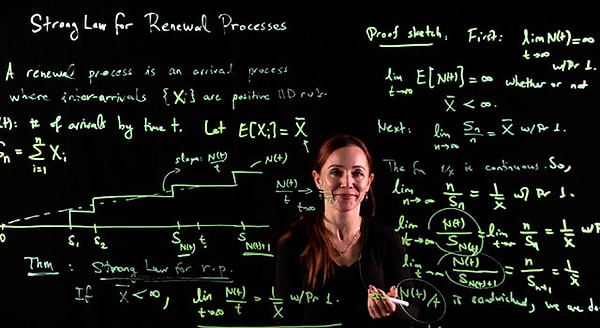 Strong Law for Renewal Processes
A renewal process is an arrival process
where inter-arrivals {Xi} are positive IID rv's.
(t): # of arrivals by time t. Let E[Xi] = X̄
Sn = Σ_{i=1}^{n} Xi
slope: N(t)/t
N(t)
N(t)/t
t→∞
0 S1 S2 S_N(t) t S_N(t)+1
Thm: Strong Law for r.p.
If X̄ < ∞, lim_{t→∞} N(t)/t = 1/X̄ w/Pr 1.
Proof sketch: First: lim_{t→∞} N(t) = ∞
w/Pr 1.
lim_{t→∞} E[N(t)] = ∞ whether or not
X̄ < ∞.
Next: lim_{n→∞} Sn/n = X̄ w/Pr 1.
The fn 1/x is continuous. So,
lim_{n→∞} n/Sn = 1/X̄ w/ Pr 1.
lim_{t→∞} N(t)/S_N(t) = lim_{n→∞} n/Sn = 1/X̄ w/P
lim_{t→∞} N(t)/S_N(t)+1 = n/S_{n+1} = 1/X̄
N(t)/t is sandwiched, we are do